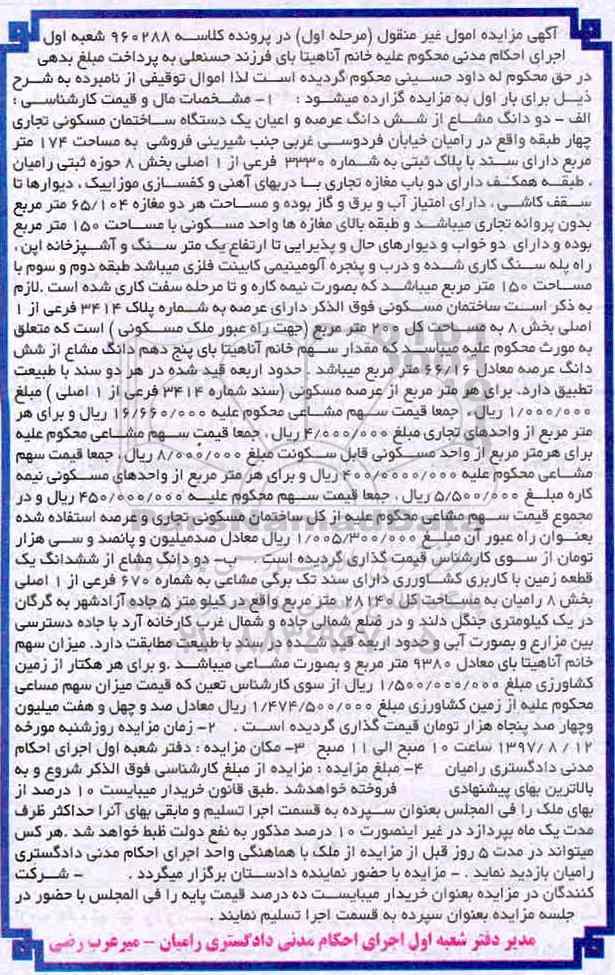 آگهی مزایده امول غیر منقول (مرحله اول) در پرونده کلاسه ۹۶۰۲۸۸ شعبه اول
اجرای احکام مدنی محکوم علیه خانم آناهیتا بای فرزند حسنعلی به پرداخت مبلغ بدهی
در حق محکوم له داود حسینی محکوم گردیده است لذا اموال توقیفی از نامبرده به شرح
ذیل برای بار اول به مزایده گزارده میشود : ۱- مشخصات مال و قیمت کارشناسی :
الف - دو دانگ مشاع از شش دانگ عرصه و اعیان یک دستگاه ساختمان مسکونی تجاری
چهار طبقه واقع در رامیان خیابان فردوسی غربی جنب شیرینی فروشی به مساحت ۱۷۴ متر
مربع دارای سند با پلاک ثبتی به شماره ۳۳۳۰ فرعی از ۱ اصلی بخش ۸ حوزه ثبتی رامیان
، طبقه همکف دارای دو باب مغازه تجاری با دربهای آهنی و کفسازی موزاییک ، دیوارها تا
سقف کاشی ، دارای امتیاز آب و برق و گاز بوده و مساحت هر دو مغازه ۶۵/۱۰۴ متر مربع
بدون پروانه تجاری میباشد و طبقه بالای مغازه ها واحد مسکونی با مساحت ۱۵۰ متر مربع
بوده و دارای دو خواب و دیوارهای حال و پذیرایی تا ارتفاع یک متر سنگ و آشپزخانه اپن ،
راه پله سنگ کاری شده و درب و پنجره آلومینیمی کابینت فلزی میباشد طبقه دوم و سوم با
مساحت ۱۵۰ متر مربع میباشد که بصورت نیمه کاره و تا مرحله سفت کاری شده است .لازم
به ذکر است ساختمان مسکونی فوق الذکر دارای عرصه به شماره پلاک ۳۴۱۴ فرعی از ۱
اصلی بخش ۸ به مساحت کل ۲۰۰ متر مربع (جهت راه عبور ملک مسکونی ) است که متعلق
به مورث محکوم علیه میباسد که مقدار سهم خانم آناهیتا بای پنج دهم دانگ مشاع از شش
دانگ عرصه معادل ۶۶/۱۶ متر مربع میباشد .حدود اربعه قید شده در هر دو سند با طبیعت
تطبیق دارد. برای هر متر مربع از عرصه مسکونی (سند شماره ۳۴۱۴ فرعی از ۱ اصلی ) مبلغ
۱/۰۰۰/۰۰۰ ریال ، جمعا قیمت سهم مشاعی محکوم علیه ۱۶/۶۶۰/۰۰۰ ریال و برای هر
متر مربع از واحدهای تجاری مبلغ ۴/۰۰۰/۰۰۰ ریال ، جمعا قیمت سهم مشاعی محکوم علیه
برای هرمتر مربع از واحد مسکونی قابل سکونت مبلغ ۸/۰۰۰/۰۰۰ ریال ، جمعا قیمت سهم
مشاعی محکوم علیه ۴۰۰/۰۰۰۰/۰۰۰ ریال و برای هر متر مربع از واحدهای مسکونی نیمه
کاره مبلغ ۵/۵۰۰/۰۰۰ ریال ، جمعا قیمت سهم محکوم علیه ۴۵۰/۰۰۰/۰۰۰ ریال و در
مجموع قیمت سهم مشاعی محکوم علیه از کل ساختمان مسکونی تجاری و عرصه استفاده شده
بعنوان راه عبور آن مبلغ ۱/۰۰۵/۳۰۰/۰۰۰ ریال معادل صدمیلیون و پانصد و سی هزار
تومان از سوی کارشناس قیمت گذاری گردیده است . ب- دو دانگ مشاع از ششدانگ یک
قطعه زمین با کاربری کشاورزی دارای سند تک برگی مشاعی به شماره ۶۷۰ فرعی از ۱ اصلی
بخش ۸ رامیان به مساحت کل ۲۸۱۴۰ متر مربع واقع در کیلو متر ۵ جاده آزادشهر به گرگان
در یک کیلومتری جنگل دلند و در ضلع شمالی جاده و شمال غرب کارخانه آرد با جاده دسترسی
بین مزارع و بصورت آبی و حدود اربعه قید شده در سند با طبیعت مطابقت دارد. میزان سهم
خانم آناهیتا بای معادل ۹۳۸۰ متر مربع و بصورت مشاعی میباشید .و برای هر هکتار از زمین
کشاورزی مبلغ ۱/۵۰۰/۰۰۰/۰۰۰ ریال از سوی کارشناس تعین که قیمت میزان سهم مساعی
محکوم علیه از زمین کشاورزی مبلغ ۱/۴۷۴/۵۰۰/۰۰۰ ریال معادل صد و چهل و هفت میلیون
وچهار صد پنجاه هزار تومان قیمت گذاری گردیده است . ۲- زمان مزایده روزشنبه مورخه
۱۳۹۷/۸/۱۲ ساعت ۱۰ صبح الی ۱۱ صبح ۳- مکان مزایده : دفتر شعبه اول اجرای احکام
مدنی دادگستری رامیان ۴- مبلغ مزایده : مزایده از مبلغ کارشناسی فوق الذکر شروع و به
بالاترین بهای پیشنهادی فروخته خواهدشد .طبق قانون خریدار میبایست ۱۰ درصد از
بهای ملک را فی المجلس بعنوان سپرده به قسمت اجرا تسلیم و مابقی بهای آنرا حداکثر ظرف
مدت یک ماه بپردازد در غیر اینصورت ۱۰ درصد مذکور به نفع دولت ظبط خواهد شد .هر کس
میتواند در مدت ۵ روز قبل از مزایده از ملک با هماهنگی واحد اجرای احکام مدنی دادگستری
رامیان بازدید نماید . - مزایده با حضور نماینده دادستان برگزار میگردد . - شرکت
کنندگان در مزایده بعنوان خریدار میبایست ده درصد قیمت پایه را فی المجلس با حضور در
جلسه مزایده بعنوان سپرده به قسمت اجرا تسلیم نمایند .
مدیر دفتر شعبه اول اجرای احکام مدنی دادگستری رامیان - میرعرب رضی